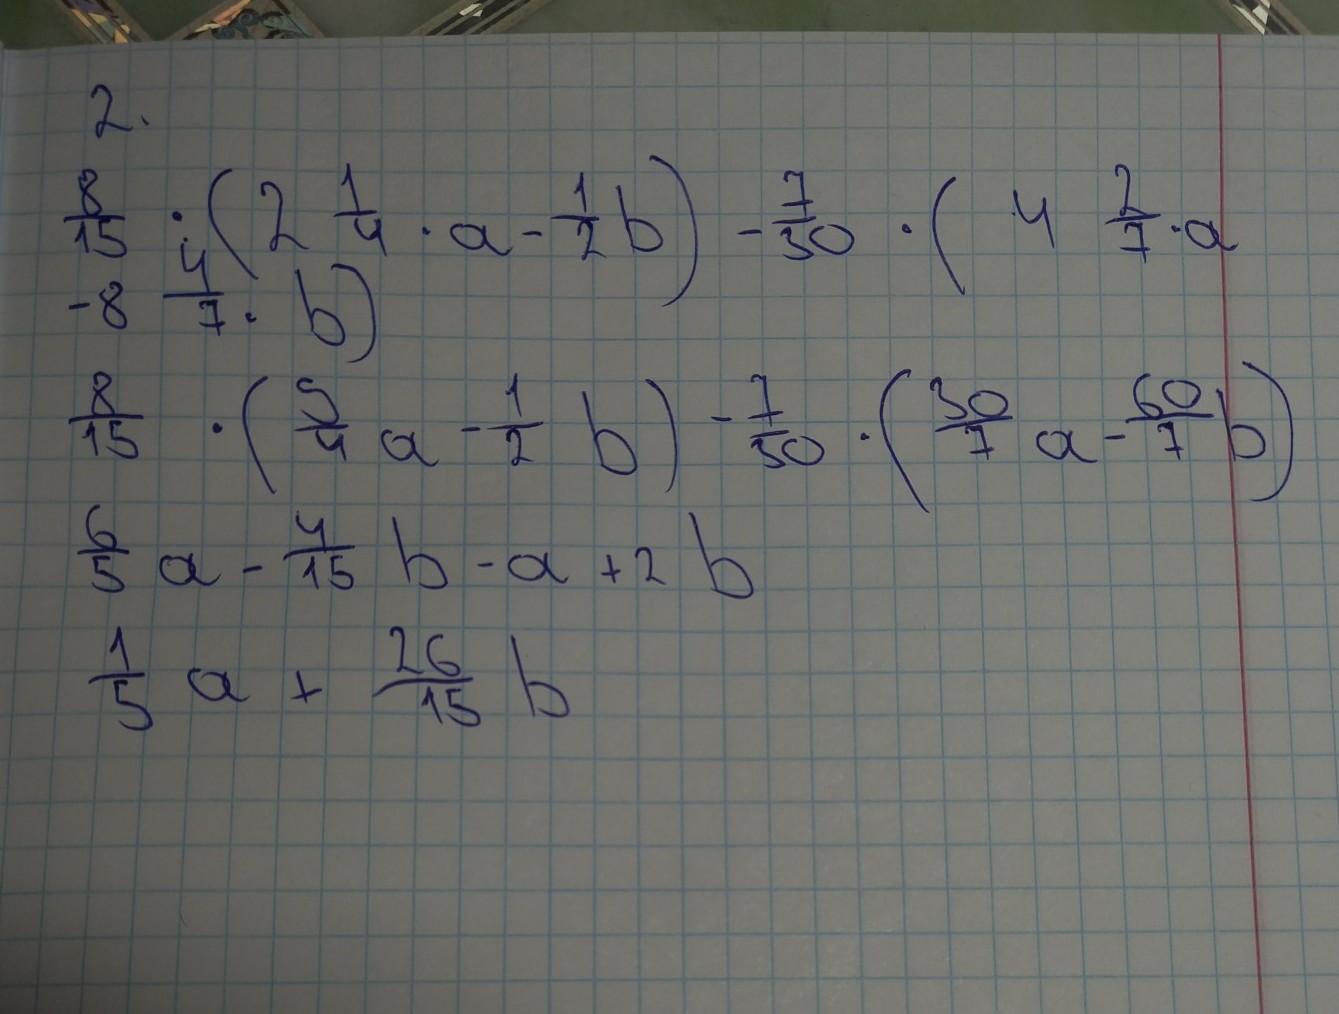 2.
8/15 · (2 1/4 · a - 1/2 b) - 7/30 · ( 4 2/7 · a
-8 4/7 · b)
8/15 · (9/4 a - 1/2 b) - 7/30 · (30/7 a - 60/7 b)
6/5 a - 4/15 b - a + 2 b
1/5 a + 26/15 b